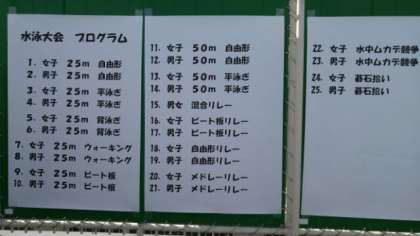 水泳大会 プログラム
1. 女子 25m 自由形
2. 男子 25m 自由形
3. 女子 25m 平泳ぎ
4. 男子 25m 平泳ぎ
5. 女子 25m 背泳ぎ
6. 男子 25m 背泳ぎ
7. 女子 25m ウォーキング
8. 男子 25m ウォーキング
9. 女子 25m ビート板
10. 男子 25m ビート板
11. 女子 50m 自由形
12. 男子 50m 自由形
13. 女子 50m 平泳ぎ
14. 男子 50m 平泳ぎ
15. 男女 混合リレー
16. 女子 ビート板リレー
17. 男子 ビート板リレー
18. 女子 自由形リレー
19. 男子 自由形リレー
20. 女子 メドレーリレー
21. 男子 メドレーリレー
22. 女子 水中ムカデ競争
23. 男子 水中ムカデ競争
24. 女子 碁石拾い
25. 男子 碁石拾い